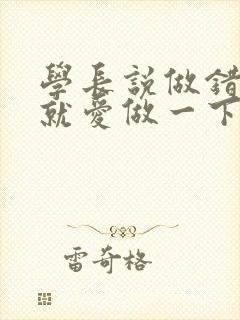 學長說做錯
就愛做一下
雷奇格